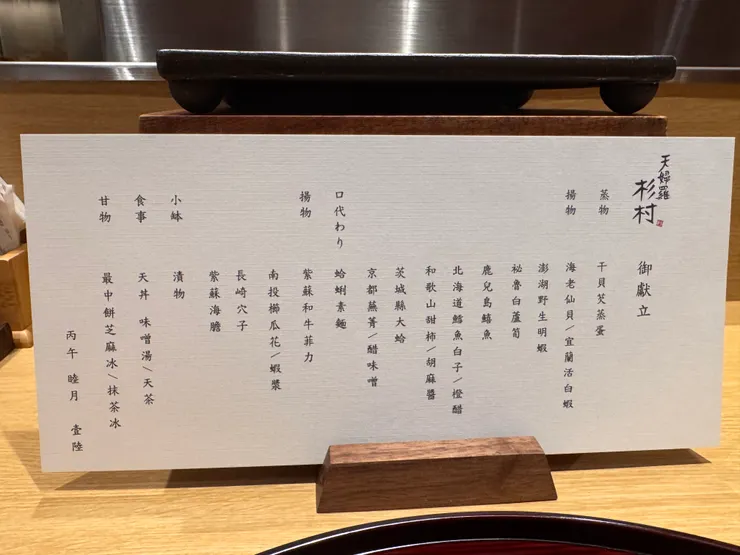 天婦羅
杉村
御獻立
蒸物 干貝芡蒸蛋
揚物 海老仙貝/宜蘭活白蝦
澎湖野生明蝦
祕魯白蘆筍
鹿兒島鱚魚
北海道鱈魚白子/橙醋
和歌山甜柿/胡麻醬
茨城縣大蛤
京都蕪菁/醋味噌
口代わり 蛤蜊素麵
揚物 紫蘇和牛菲力
南投櫛瓜花/蝦漿
長崎穴子
紫蘇海膽
小缽 漬物
食事 天丼 味噌湯/天茶
甘物 最中餅芝麻冰/抹茶冰
丙午 睦月 壹陸